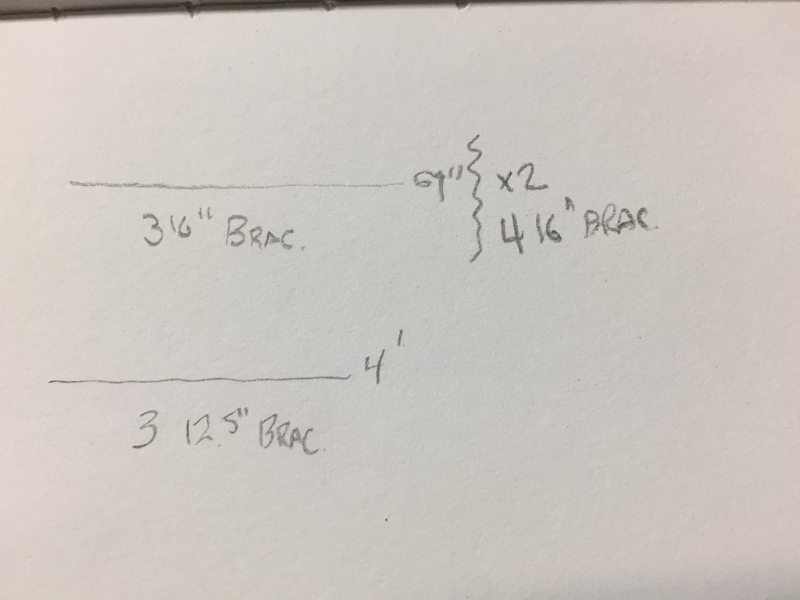 x2
3 16" BRAC.
4 16" BRAC.
4'
3 12.5" BRAC.